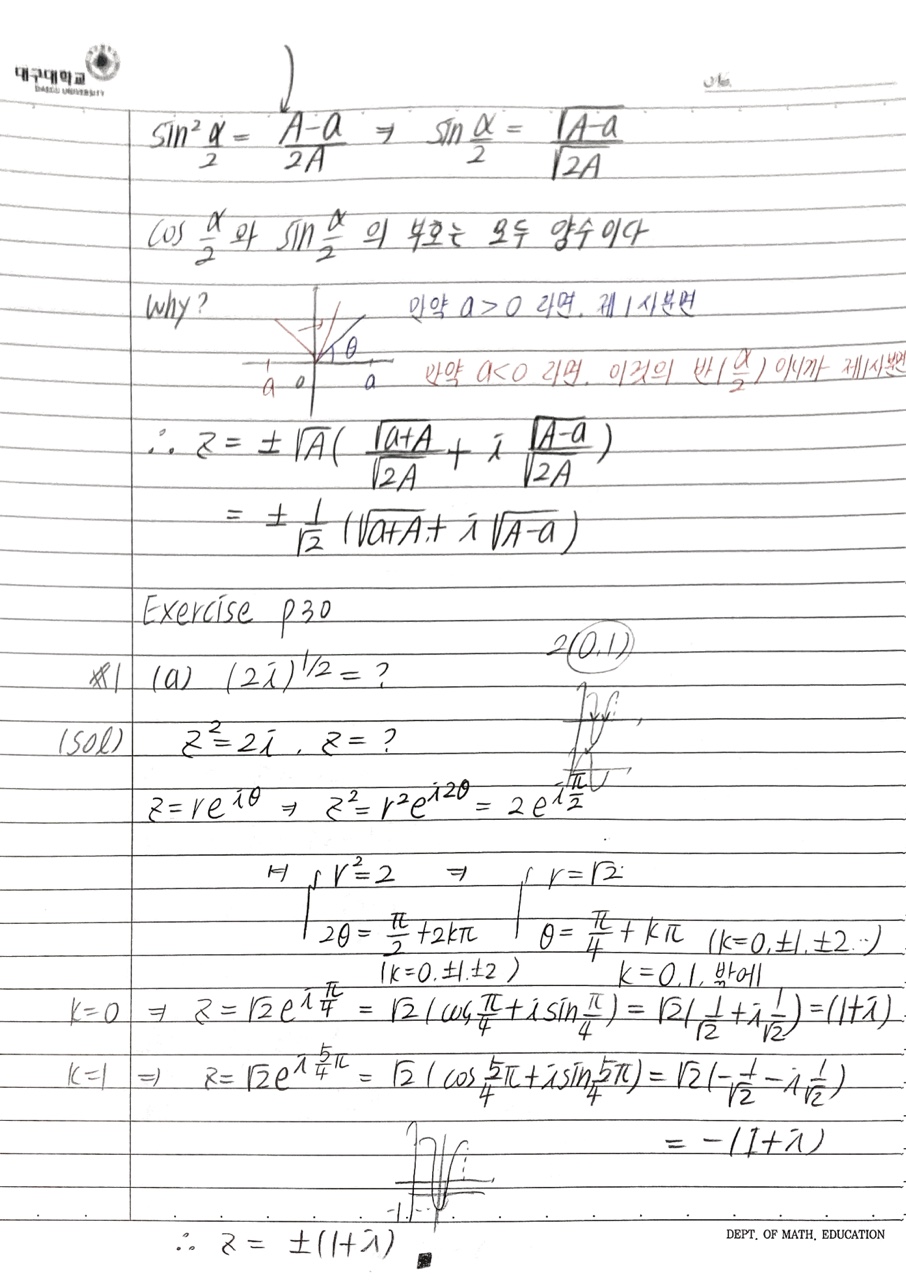 대구대학교
DAEGU UNIVERSITY
No.
sin² α/2 = (A-a)/(2A) ⇒ sin α/2 = √(A-a)/√(2A)
cos α/2 와 sin α/2 의 부호는 모두 양수이다
Why? 만약 a>0 라면. 제1사분면
θ
a 0 a 만약 a<0 라면. 이것의 반(α/2)이니까 제1사분면
∴ z = ±√A( √(a+A)/√(2A) + i √(A-a)/√(2A) )
= ± 1/√2 (√(a+A) + i √(A-a))
Exercise p30
2(0.1)
#1 (a) (2i)^1/2 = ?
(sol) z²=2i . z= ?
z=re^iθ ⇒ z²=r²e^i2θ = 2e^iπ/2
↦ { r²=2 ⇒ { r=√2
2θ = π/2 +2kπ θ= π/4 + kπ (k=0.±1.±2..)
(k=0.±1.±2) k=0.1. 밖에
k=0 ⇒ z=√2e^iπ/4 = √2(cosπ/4+isinπ/4) = √2(1/√2+i1/√2)=(1+i)
k=1 ⇒ z=√2e^i5/4π = √2(cos5/4π+isin5/4π)=√2(-1/√2-i1/√2)
= -(1+i)
-1
∴ z= ±(1+i)
DEPT. OF MATH. EDUCATION